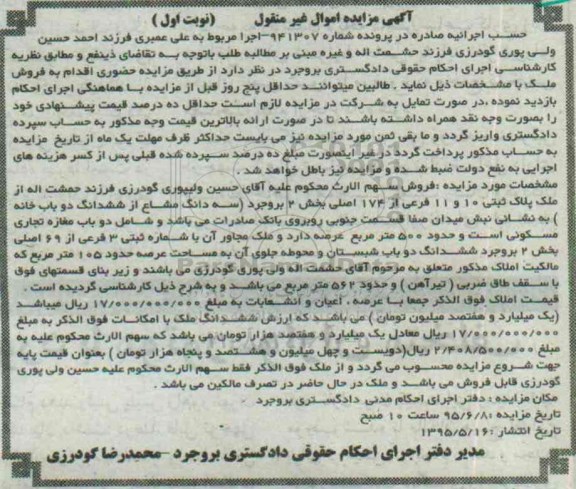 آگهی مزایده اموال غیر منقول (نوبت اول)
حسب اجرائیه صادره در پرونده شماره ۹۴۱۳۰۷-اجرا مربوط به علی عمبری فرزند احمد حسین
ولی پوری گودرزی فرزند حشمت اله و غیره مبنی بر مطالبه طلب باتوجه به تقاضای ذینفع و مطابق نظریه
کارشناسی اجرای احکام حقوقی دادگستری بروجرد در نظر دارد از طریق مزایده حضوری اقدام به فروش
ملک با مشخصات ذیل نماید . طالبین میتوانند حداقل پنج روز قبل از مزایده با هماهنگی اجرای احکام
بازدید نموده ،در صورت تمایل به شرکت در مزایده لازم است حداقل ده درصد قیمت پیشنهادی خود
را بصورت وجه نقد همراه داشته باشند تا در صورت ارائه بالاترین قیمت وجه مذکور به حساب سپرده
دادگستری واریز گردد و ما بقی ثمن مورد مزایده نیز می بایست حداکثر ظرف مهلت یک ماه از تاریخ مزایده
به حساب مذکور پرداخت گردد در غیر اینصورت مبلغ ده درصد سپرده شده قبلی پس از کسر هزینه های
اجرایی به نفع دولت ضبط شده و مزایده نیز باطل خواهد شد .
مشخصات مورد مزایده :فروش سهم الارث محکوم علیه آقای حسین ولیپوری گودرزی فرزند حمشت اله از
ملک پلاک ثبتی ۱۰ و ۱۱ فرعی از ۱۷۴ اصلی بخش ۲ بروجرد (سه دانگ مشاع از ششدانگ دو باب خانه
) به نشانی نبش میدان صفا قسمت جنوبی روبروی بانک صادرات می باشد و شامل دو باب مغازه تجاری
مسکونی است و حدود ۵۰۰ متر مربع عرصه دارد و ملک مجاور آن با شماره ثبتی ۳ فرعی از ۶۹ اصلی
بخش ۲ بروجرد ششدانگ دو باب شبستان و محوطه جلوی آن به مساحت عرصه حدود ۱۰۵ متر مربع که
مالکیت املاک مذکور متعلق به مرحوم آقای حشمت اله ولی پوری گودرزی می باشند و زیر بنای قسمتهای فوق
با سقف طاق ضربی ( تیرآهن ) و حدود ۵۶۲ متر مربع می باشد و به شرح ذیل کارشناسی گردیده است .
قیمت املاک فوق الذکر جمعا با عرصه ، اعیان و انشعابات به مبلغ ۱۷/۰۰۰/۰۰۰/۰۰۰ ریال میباشد
(یک میلیارد و هفتصد میلیون تومان ) می باشد که ارزش ششدانگ ملک با امکانات فوق الذکر به مبلغ
۱۷/۰۰۰/۰۰۰/۰۰۰ ریال معادل یک میلیارد و هفتصد هزار تومان می باشد که سهم الارث محکوم علیه به
مبلغ ۲/۴۰۸/۵۰۰/۰۰۰ ریال(دویست و چهل میلیون و هشتصد و پنجاه هزار تومان ) بعنوان قیمت پایه
جهت شروع مزایده محسوب می گردد و از ملک فوق الذکر فقط سهم الارث محکوم علیه حسین ولی پوری
گودرزی قابل فروش می باشد و ملک در حال حاضر در تصرف مالکین می باشد .
مکان مزایده : دفتر اجرای احکام مدنی دادگستری بروجرد
تاریخ مزایده :۹۵/۶/۸ ساعت ۱۰ صبح
تاریخ انتشار :۱۳۹۵/۵/۱۶
مدیر دفتر اجرای احکام حقوقی دادگستری بروجرد -محمدرضا گودرزی